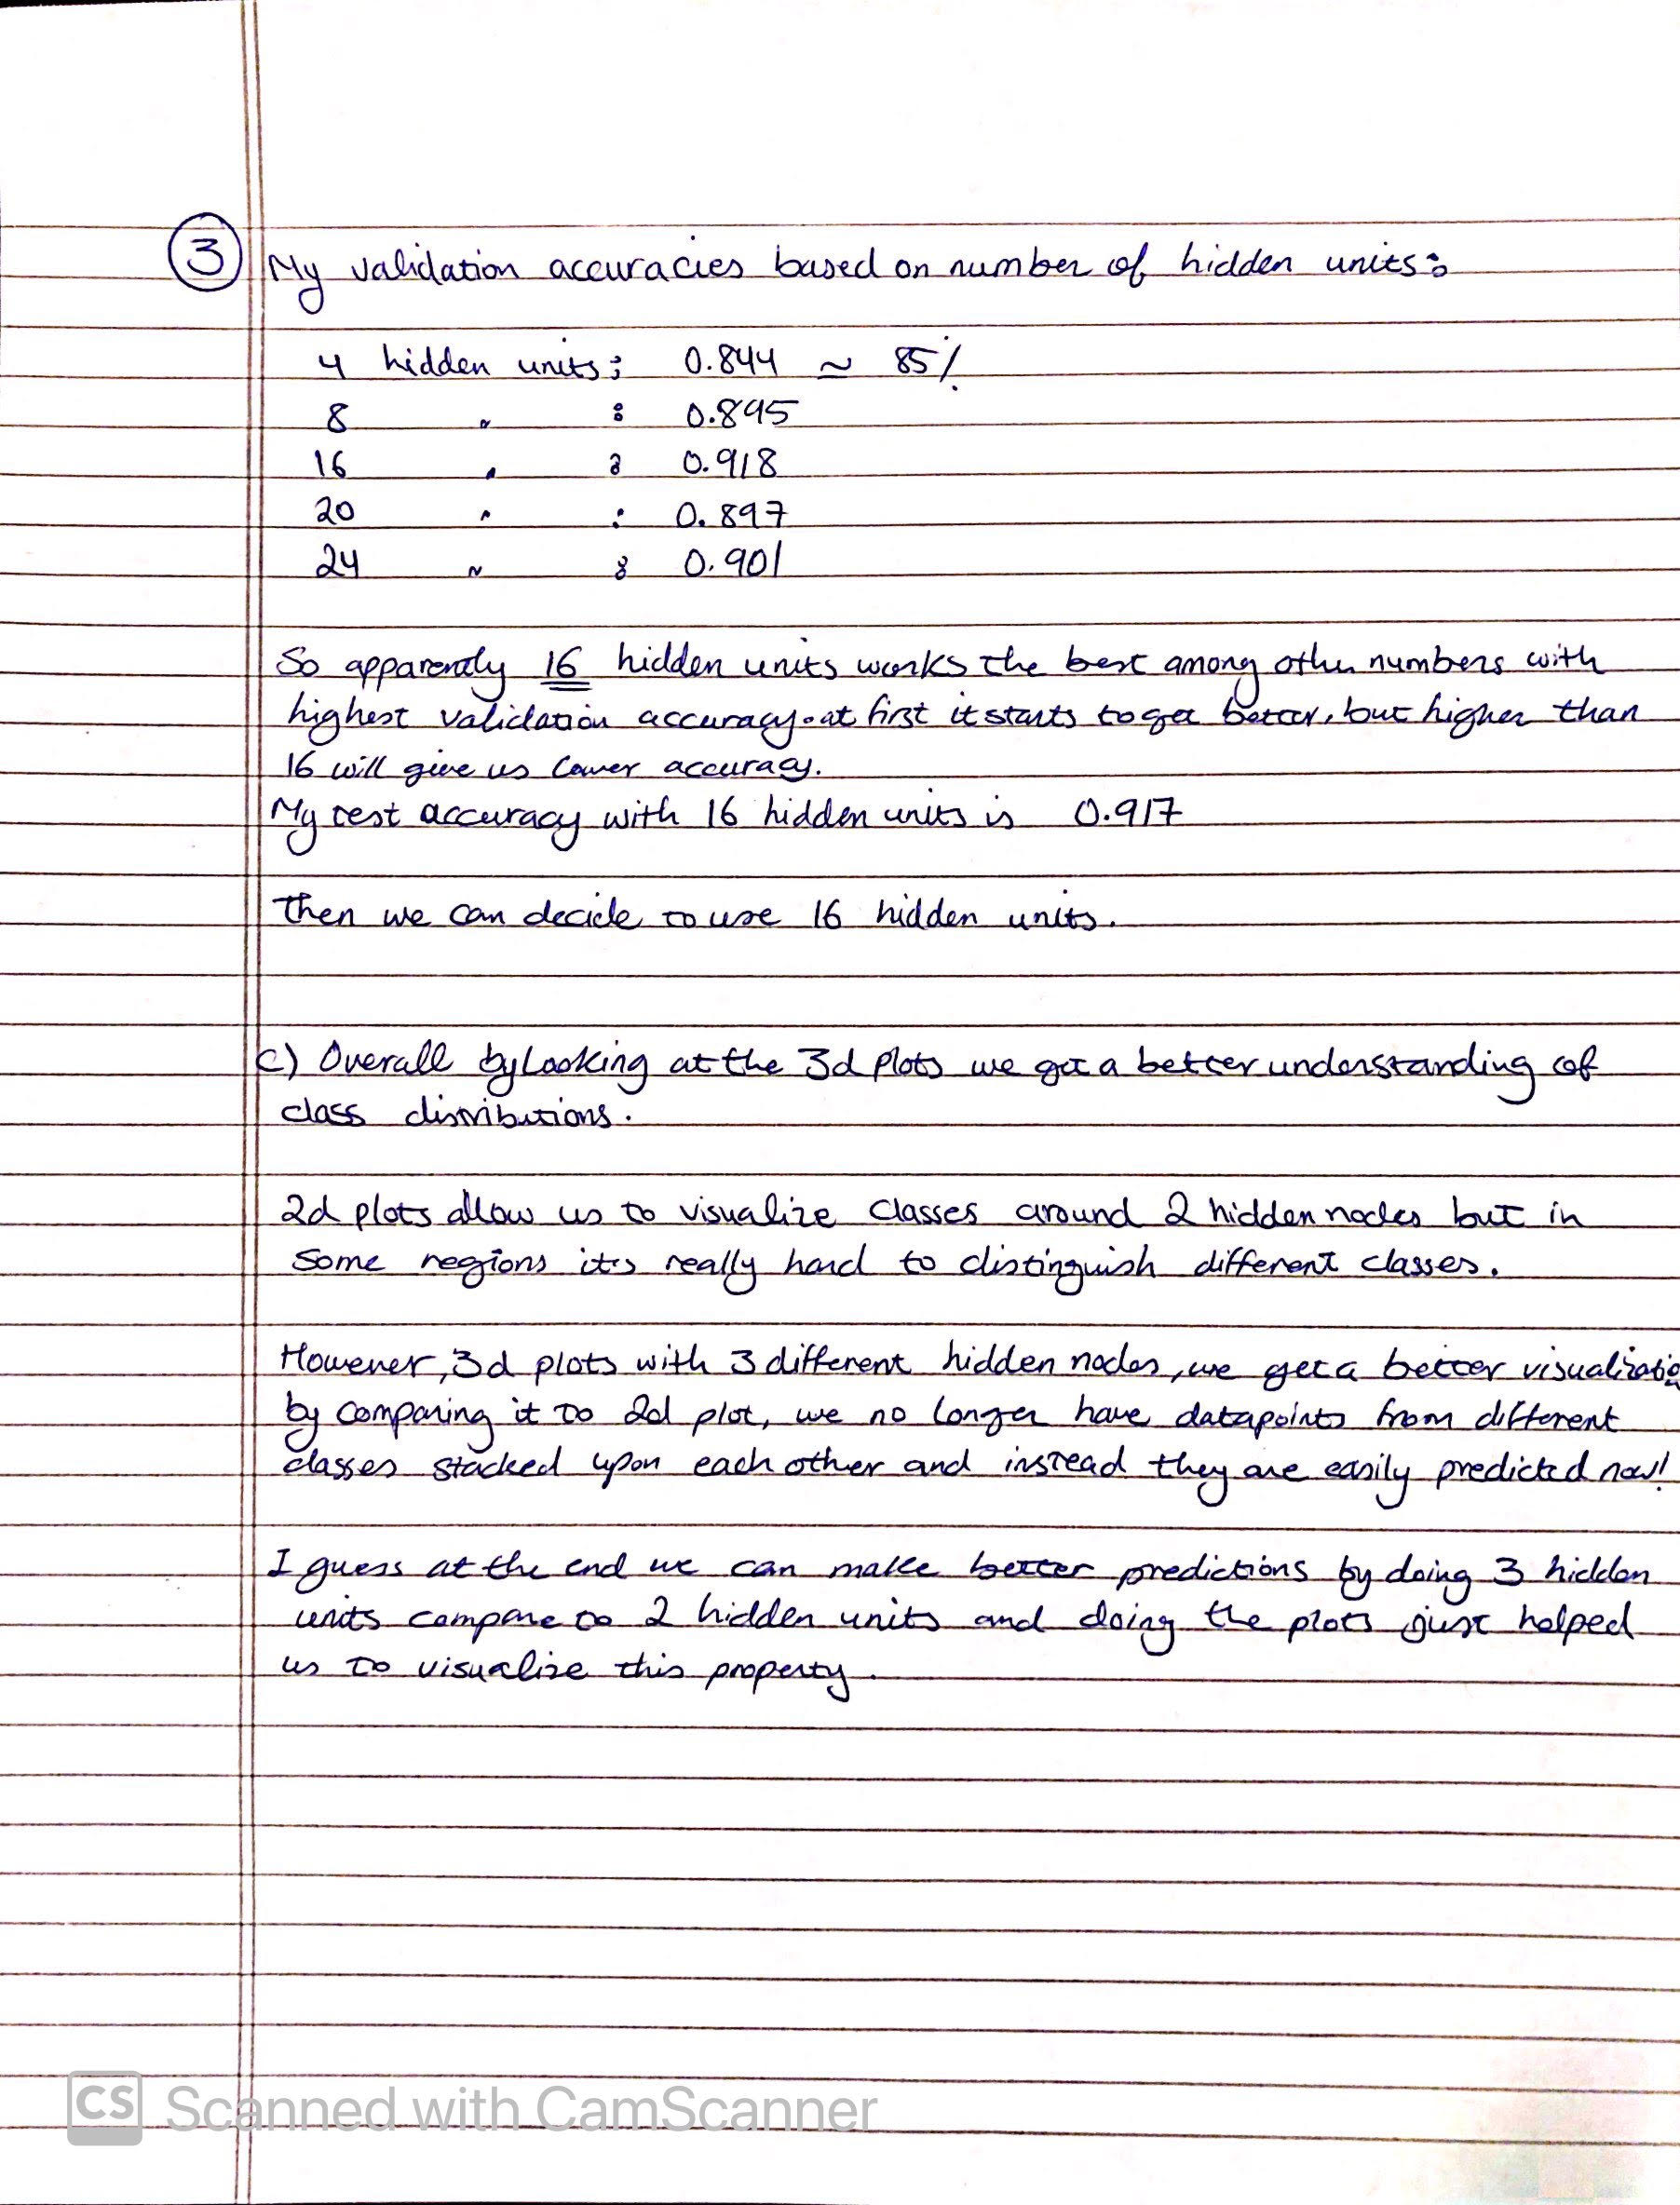 3 My validation accuracies based on number of hidden units:
4 hidden units: 0.844 ≈ 85%
8 " : 0.895
16 " : 0.918
20 " : 0.897
24 " : 0.901
So apparently 16 hidden units works the best among other numbers with
highest validation accuracy. at first it starts to get better, but higher than
16 will give us lower accuracy.
My test accuracy with 16 hidden units is 0.917
Then we can decide to use 16 hidden units.
c) Overall by Looking at the 3d plots we get a better understanding of
class distributions.
2d plots allow us to visualize classes around 2 hidden nodes but in
some regions it's really hard to distinguish different classes.
However, 3d plots with 3 different hidden nodes, we get a better visualizatio
by comparing it to 2d plot, we no longer have datapoints from different
classes stacked upon each other and instead they are easily predicted now!
I guess at the end we can make better predictions by doing 3 hidden
units compare to 2 hidden units and doing the plots just helped
us to visualize this property.
CS Scanned with CamScanner